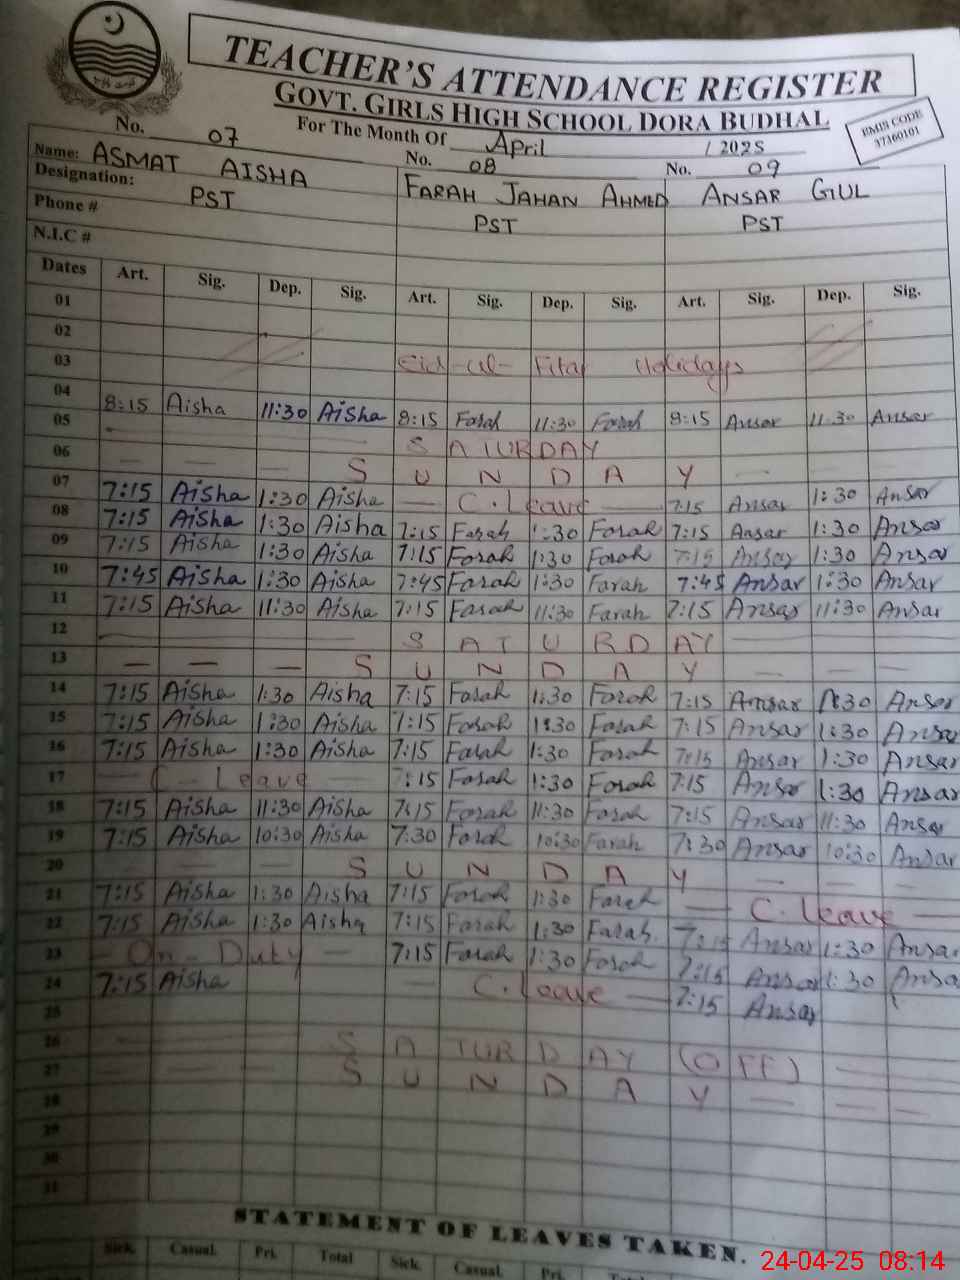 TEACHER'S ATTENDANCE REGISTER
GOVT. GIRLS HIGH SCHOOL DORA BUDHAL
EMIS CODE
37360101
For The Month Of April / 2025
No. 07 No. 08 No. 09
Name: ASMAT AISHA FARAH JAHAN AHMED ANSAR GUL
Designation: PST PST PST
Phone #
N.I.C #
Dates Art. Sig. Dep. Sig. Art. Sig. Dep. Sig. Art. Sig. Dep. Sig.
01
02
03 Eid-ul-Fitar Holidays
04 8:15 Aisha 11:30 Aisha 8:15 Farah 11:30 Farah 8:15 Ansar 11:30 Ansar
05 SATURDAY
06 SUNDAY
07 7:15 Aisha 1:30 Aisha C. Leave 7:15 Ansar 1:30 Ansar
08 7:15 Aisha 1:30 Aisha 7:15 Farah 1:30 Farah 7:15 Ansar 1:30 Ansar
09 7:15 Aisha 1:30 Aisha 7:15 Farah 1:30 Farah 7:15 Ansar 1:30 Ansar
10 7:45 Aisha 1:30 Aisha 7:45 Farah 1:30 Farah 7:45 Ansar 1:30 Ansar
11 7:15 Aisha 11:30 Aisha 7:15 Farah 11:30 Farah 7:15 Ansar 11:30 Ansar
12 SATURDAY
13 SUNDAY
14 7:15 Aisha 1:30 Aisha 7:15 Farah 1:30 Farah 7:15 Ansar 1:30 Ansar
15 7:15 Aisha 1:30 Aisha 7:15 Farah 1:30 Farah 7:15 Ansar 1:30 Ansar
16 7:15 Aisha 1:30 Aisha 7:15 Farah 1:30 Farah 7:15 Ansar 1:30 Ansar
17 C - Leave 7:15 Farah 1:30 Farah 7:15 Ansar 1:30 Ansar
18 7:15 Aisha 11:30 Aisha 7:15 Farah 11:30 Farah 7:15 Ansar 11:30 Ansar
19 7:15 Aisha 10:30 Aisha 7:30 Farah 10:30 Farah 7:30 Ansar 10:30 Ansar
20 SUNDAY
21 7:15 Aisha 1:30 Aisha 7:15 Farah 1:30 Farah C. Leave
22 7:15 Aisha 1:30 Aisha 7:15 Farah 1:30 Farah 7:15 Ansar 1:30 Ansar
23 - On - Duty - 7:15 Farah 1:30 Farah 7:15 Ansar 1:30 Ansar
24 7:15 Aisha C. Leave 7:15 Ansar
25
26 SATURDAY (OFF)
27 SUNDAY
28
29
30
31
STATEMENT OF LEAVES TAKEN.
Sick. Casual. Pri. Total Sick. Casual. Pri. Total
24-04-25 08:14